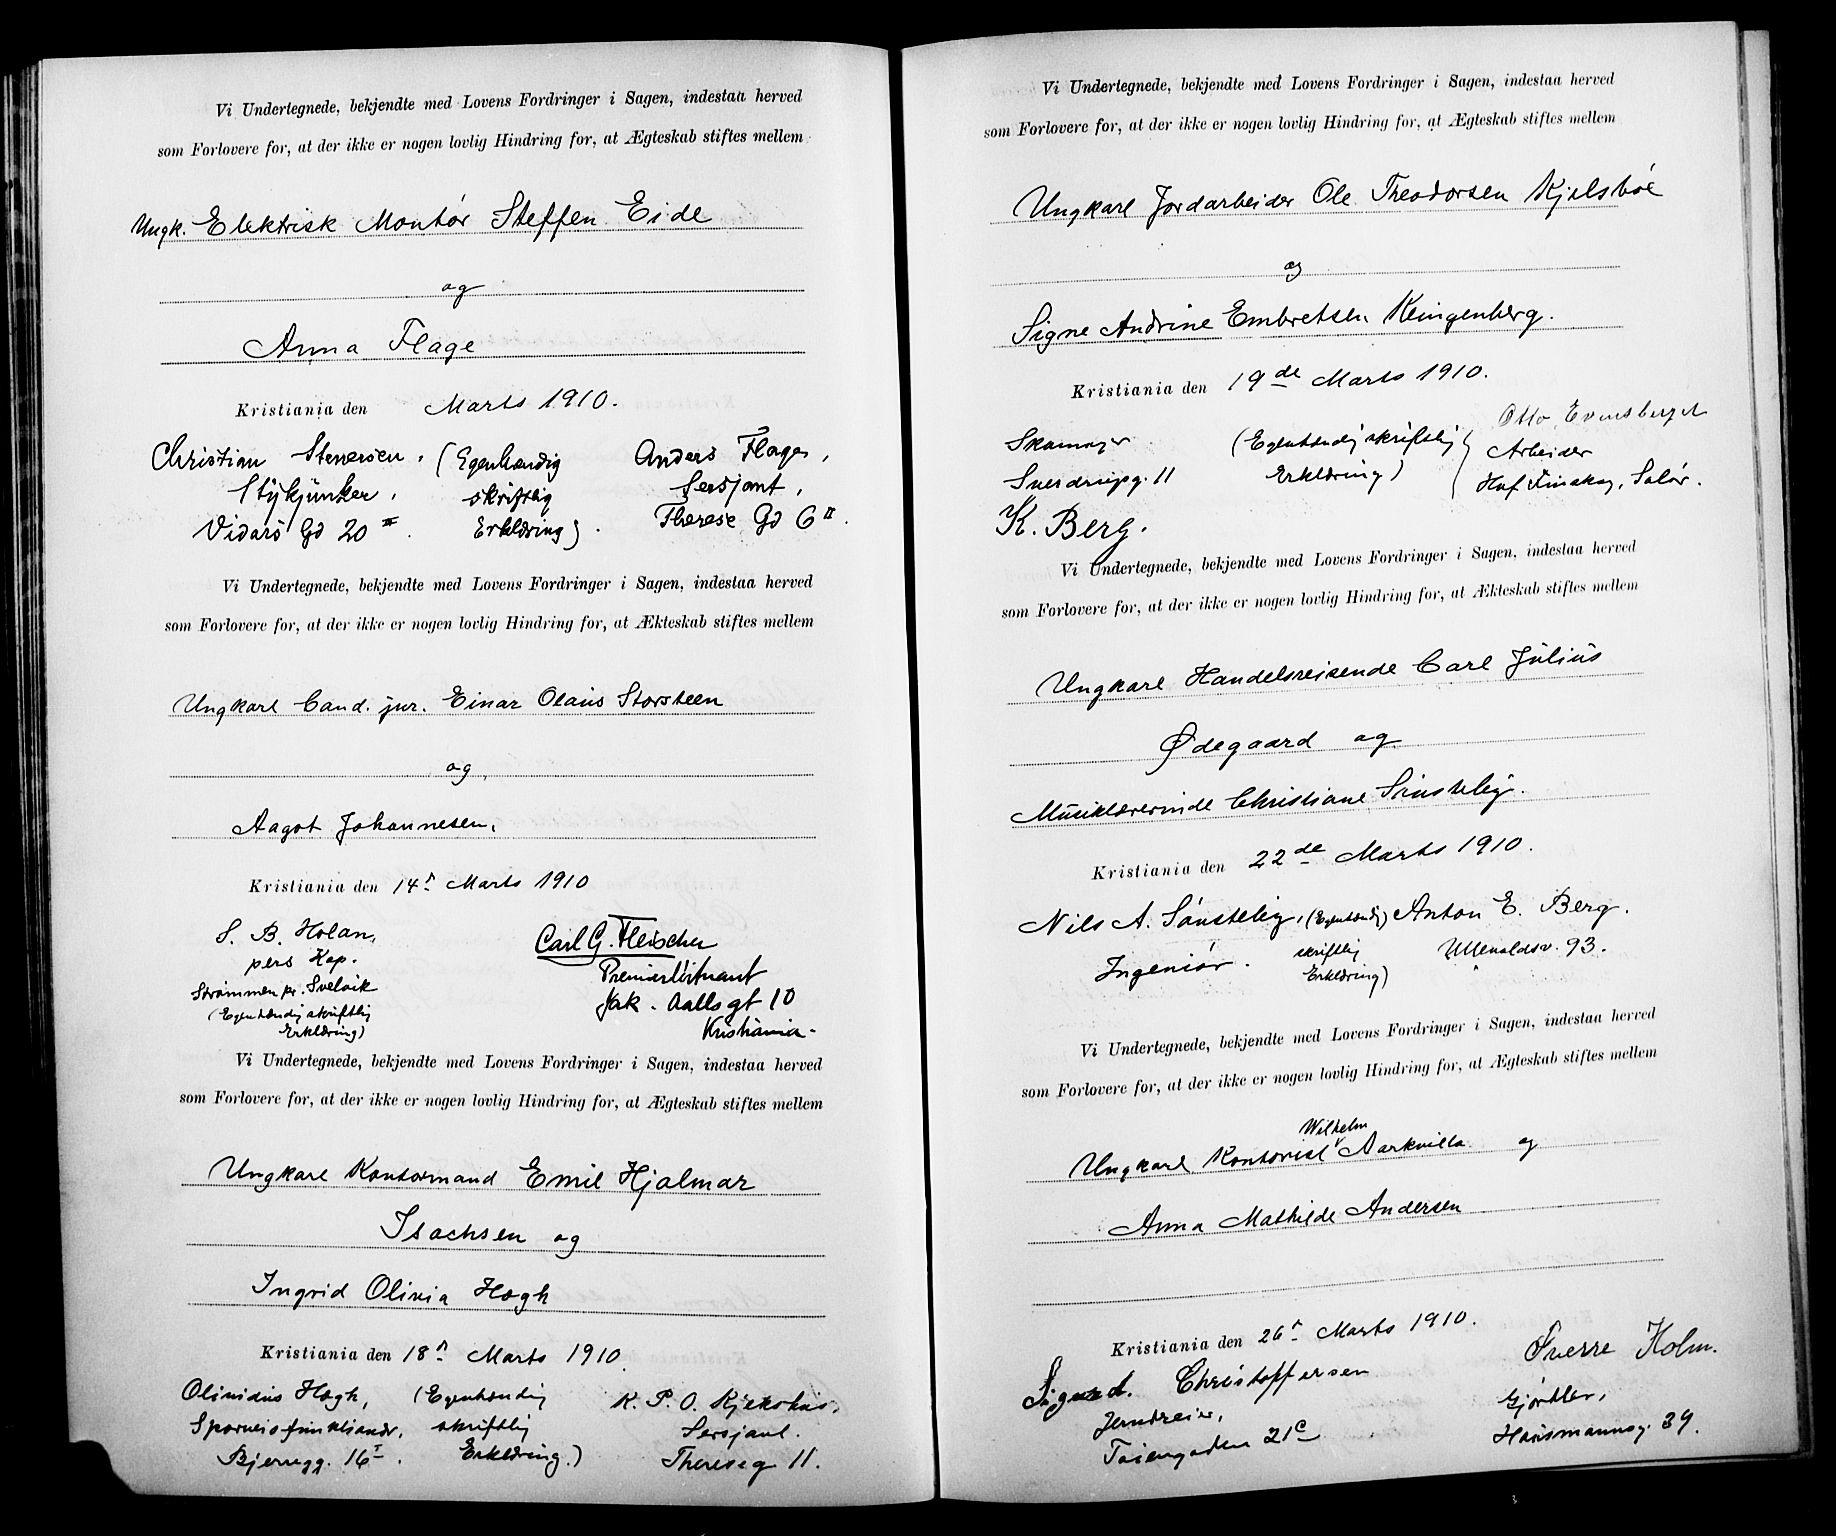 Vi Undertegnede, bekjendte med Lovens Fordringer i Sagen, indestaa herved
som Forlovere for, at der ikke er nogen lovlig Hindring for, at Ægteskab stiftes mellem
Ungk. Elektrisk Montör Steffen Eide
og
Anna Flage
Kristiania den Marts 1910.
Christian Stenersen. (Egenhændig Anders Flage,
Stykjunker, skriftlig Sersjant,
Vidars Gd 20 III. Erklæring). Therese Gd 6 II.
Vi Undertegnede, bekjendte med Lovens Fordringer i Sagen, indestaa herved
som Forlovere for, at der ikke er nogen lovlig Hindring for, at Ækteskab stiftes mellem
Ungkarl Cand. jur. Einar Olaus Storsteen
og
Aagot Johannesen.
Kristiania den 14de Marts 1910
S. B. Holan, Carl G. Fleischer
pers Kap. Premierløitnant
Strømmen pr. Svelvik Jak. Aallsgt 10
(Egenhændig skriftlig Kristiania.
Erklæring)
Vi Undertegnede, bekjendte med Lovens Fordringer i Sagen, indestaa herved
som Forlovere for, at der ikke er nogen lovlig Hindring for, at Ægteskab stiftes mellem
Ungkarl Kontormand Emil Hjalmar
Isachsen og
Ingrid Olivia Hægh
Kristiania den 18de Marts 1910.
Olinidus Hægh, (Egenhændig K. P. O. Kjekshus,
Sporveisfunktionær, skriftlig Sersjant.
Bjerregg. 16 I. Erklæring.) Thereseg 11.
Vi Undertegnede, bekjendte med Lovens Fordringer i Sagen, indestaa herved
som Forlovere for, at der ikke er nogen lovlig Hindring for, at Ægteskab stiftes mellem
Ungkarl Jordarbeider Ole Theodorsen Kjelsböe
og
Signe Andrine Embretsen Klingenberg.
Kristiania den 19de Marts 1910.
Otto Evensberget
Skomager (Egenhændig skriftlig Arbeider
Sverdrupg. 11 Erklæring) Hof Finskog, Solör.
K. Berg.
Vi Undertegnede, bekjendte med Lovens Fordringer i Sagen, indestaa herved
som Forlovere for, at der ikke er nogen lovlig Hindring for, at Ækteskab stiftes mellem
Ungkarl Handelsreisende Carl Julius
Ødegaard og
Musiklærerinde Christiane Sönsteby.
Kristiania den 22de Marts 1910.
Nils A. Sönsteby, (Egenhændig) Anton E. Berg.
Ingeniör. skriftlig Ullevoldsv. 93.
Erklæring)
Vi Undertegnede, bekjendte med Lovens Fordringer i Sagen, indestaa herved
som Forlovere for, at der ikke er nogen lovlig Hindring for, at Ægteskab stiftes mellem
Wilhelm
Ungkarl Kontorist Aarkvilla og
Anna Mathilde Andersen
Kristiania den 26de Marts 1910.
Sigurd. Christoffersen Sverre Holm.
Jerndreier, Gjörtler,
Töiengaden 21c Hausmannsg. 39.